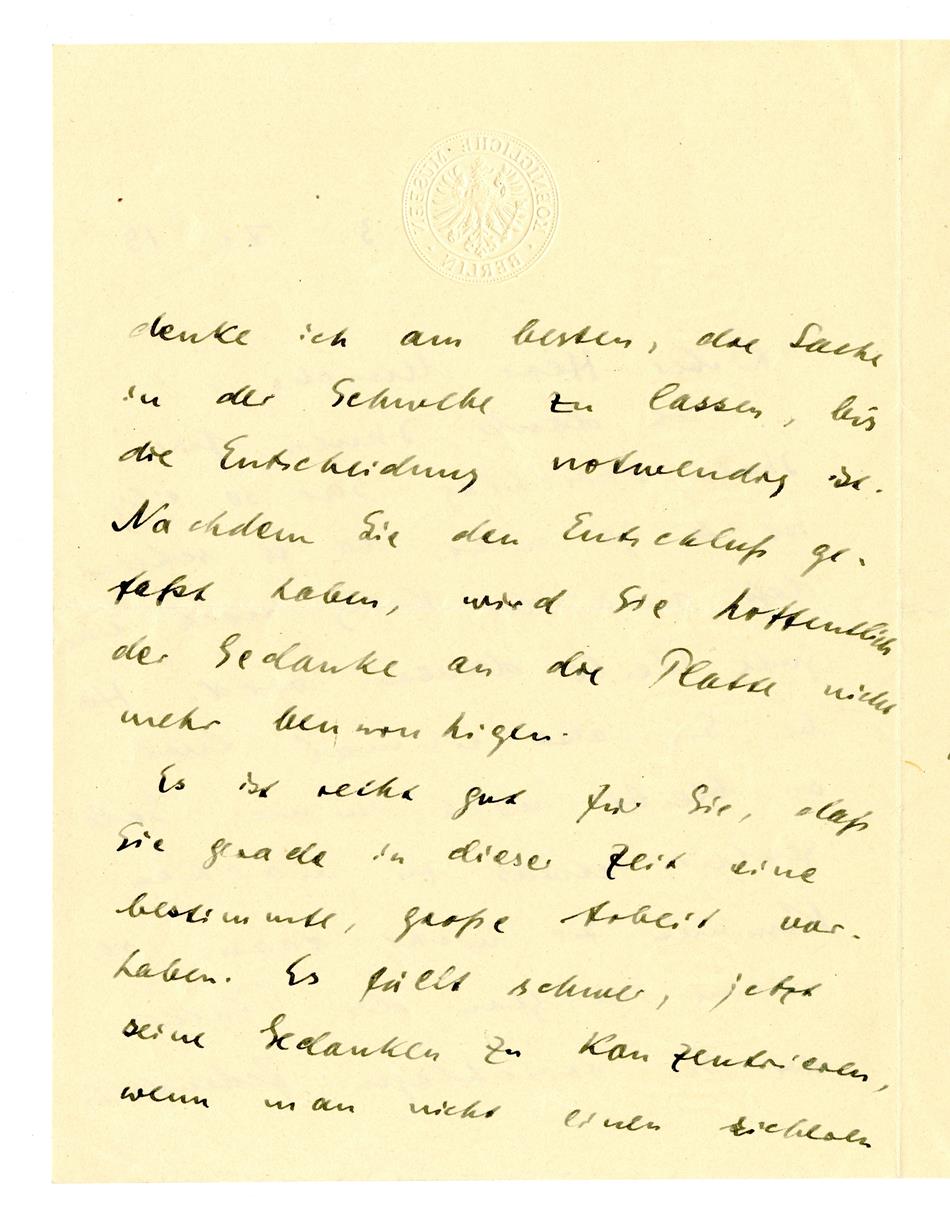 KOENIGLICHE · MUSEEN · BERLIN
denke ich am besten, die Sache
in der Schwebe zu lassen, bis
die Entscheidung notwendig ist.
Nachdem Sie den Entschluß ge-
faßt haben, wird Sie hoffentlich
der Gedanke an die Platte nicht
mehr beunrouhigen.
Es ist recht gut für Sie, daß
Sie gerade in dieser Zeit eine
bestimmte, große Arbeit vor-
haben. Es fällt schwer, jetzt
seine Gedanken zu konzentrieren,
wenn man nicht einen